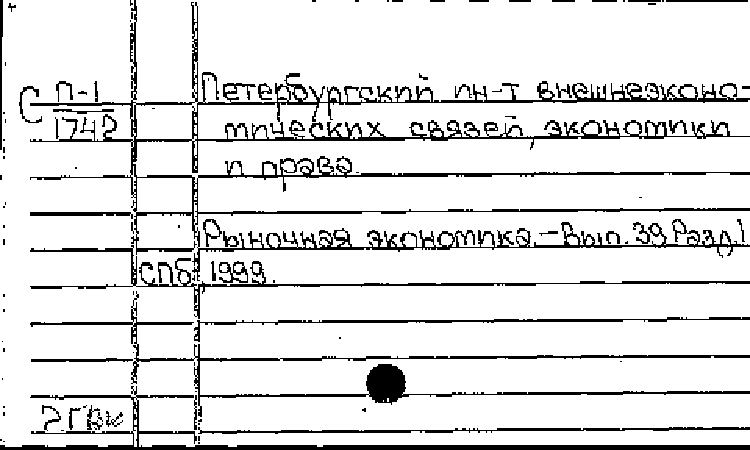 С П-1 Петербургский ин-т внешнеэконо-
1742 мических связей, экономики
и права.
Рыночная экономика.-Вып.39 Разд.1
СПб, 1999.